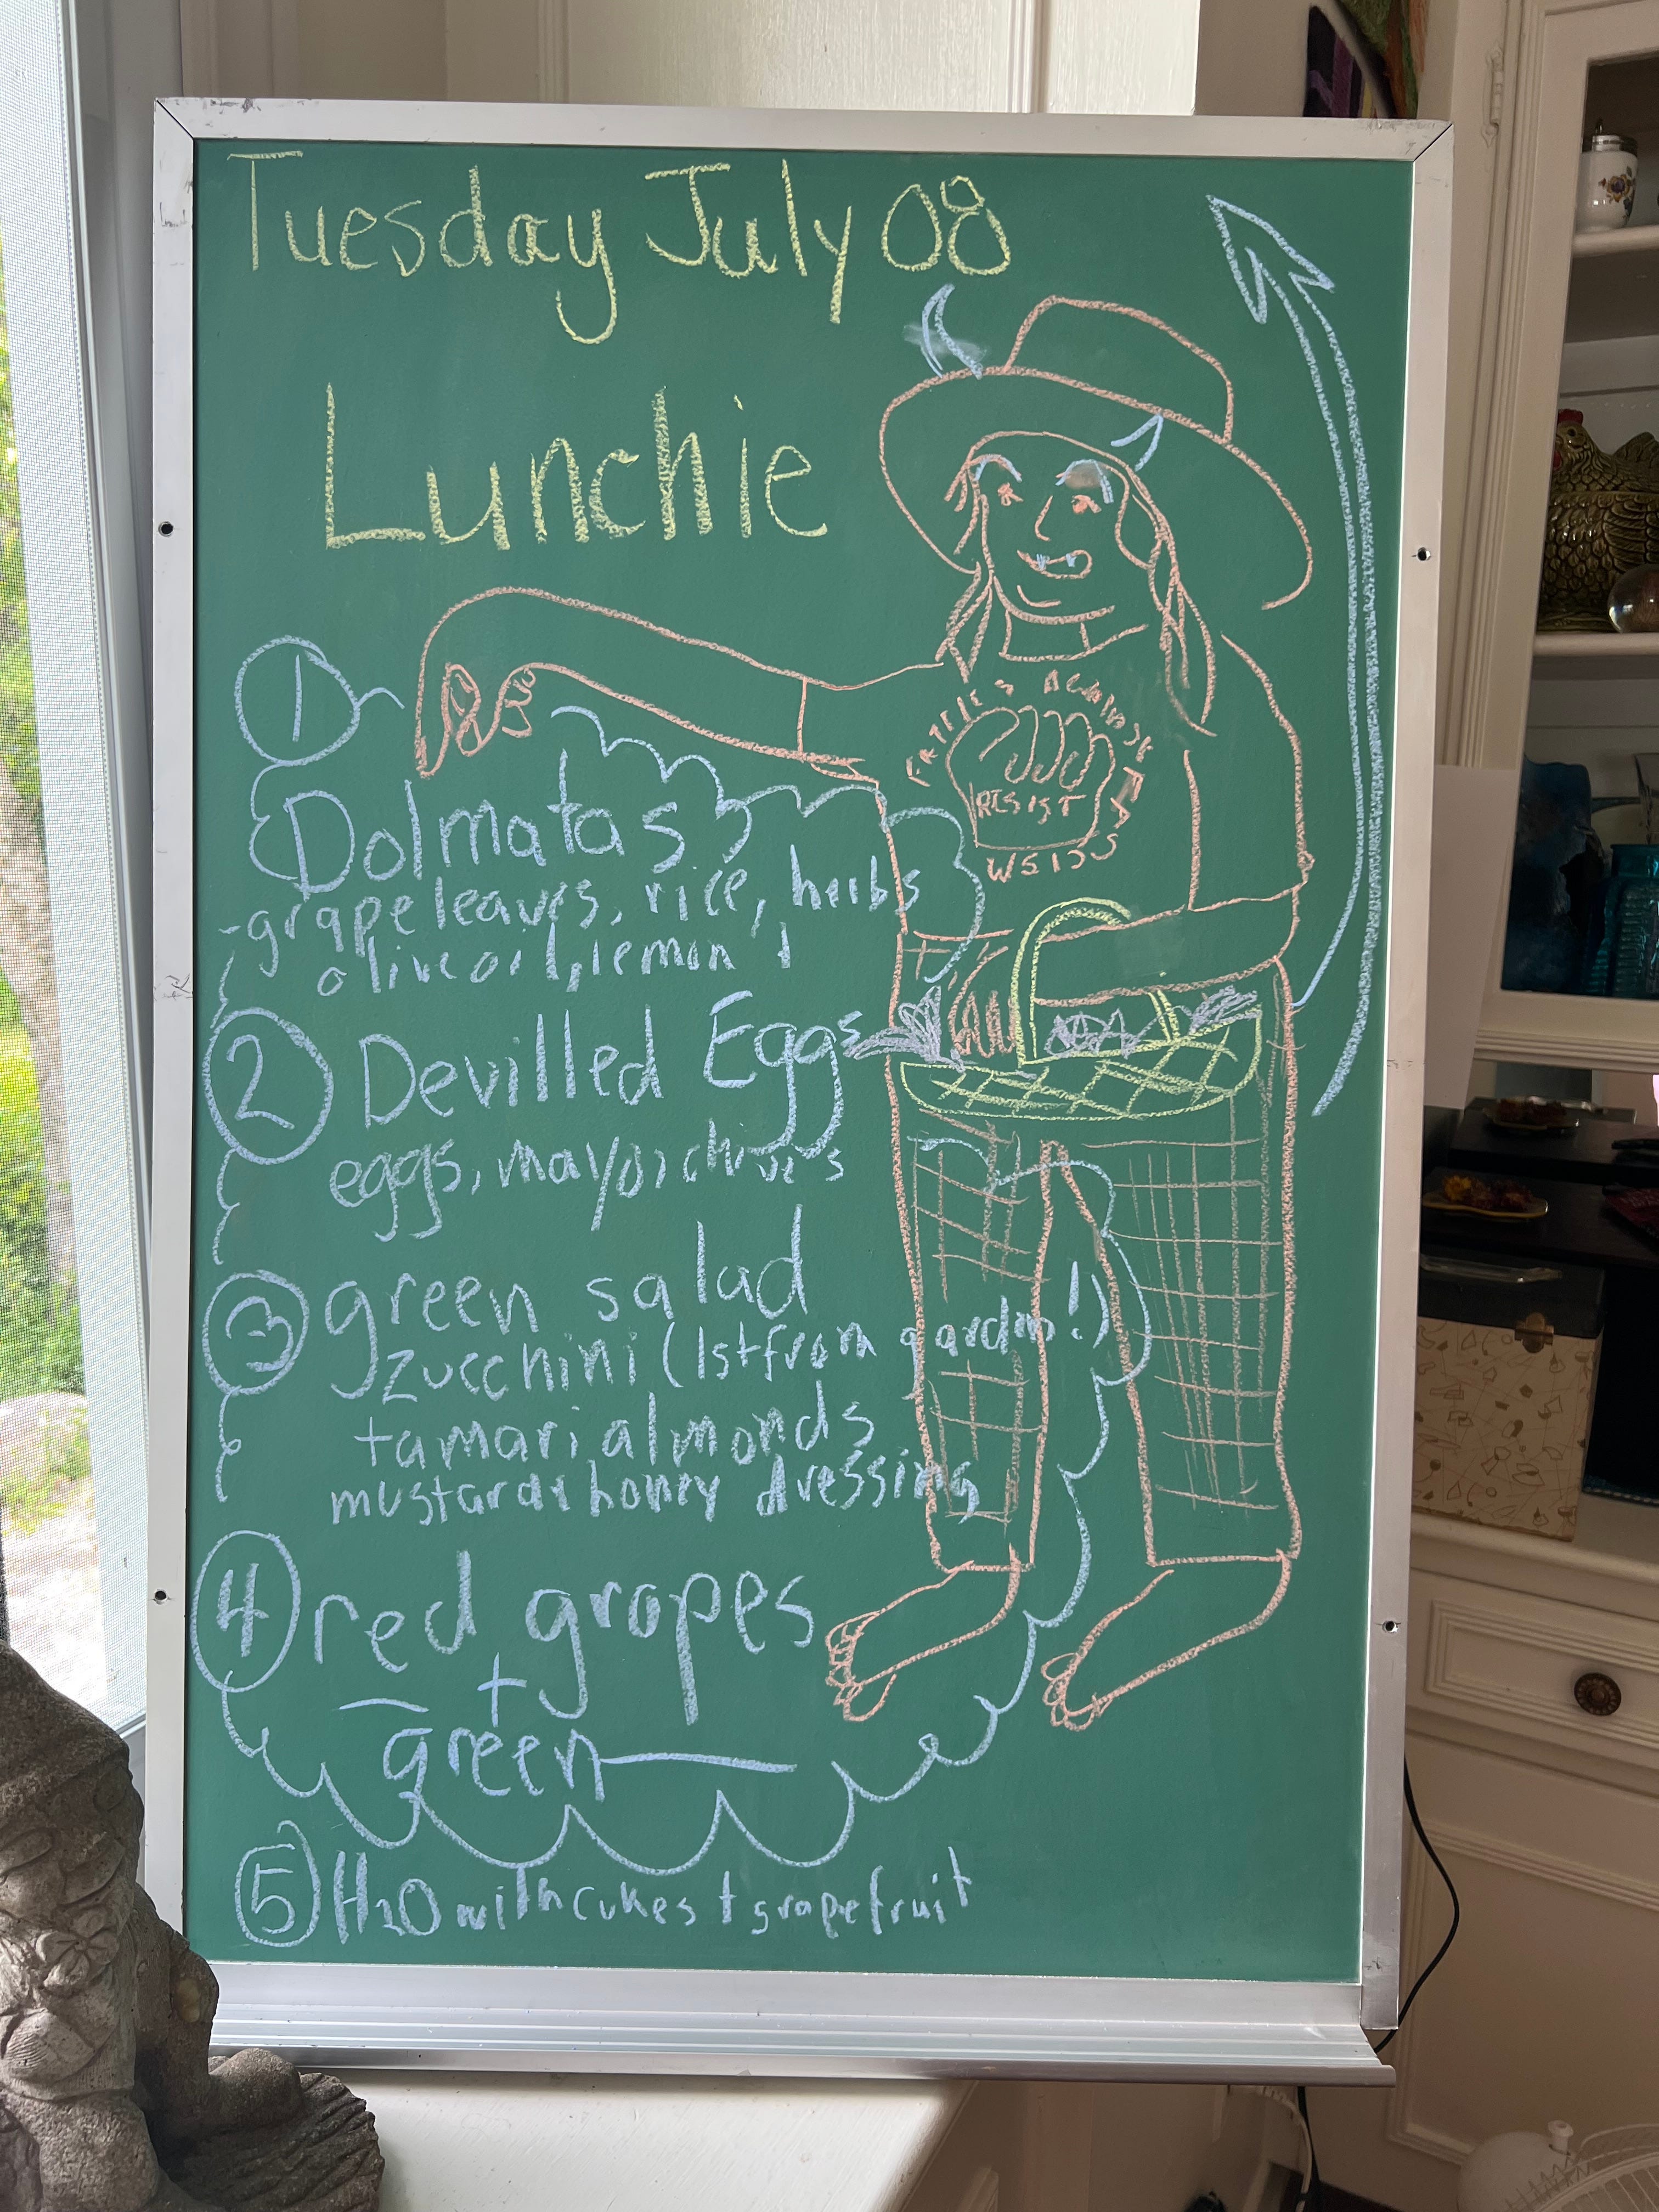 Tuesday July 08
Lunchie
1
Dolmatas
-grape leaves, rice, herbs
olive oil, lemon
2 Devilled Eggs
eggs, mayo, chives
3 green salad
zucchini (1st from garden!)
tamari almonds
mustard & honey dressing
4 red grapes
+
green
5 H2O with cukes + grapefruit
RESIST